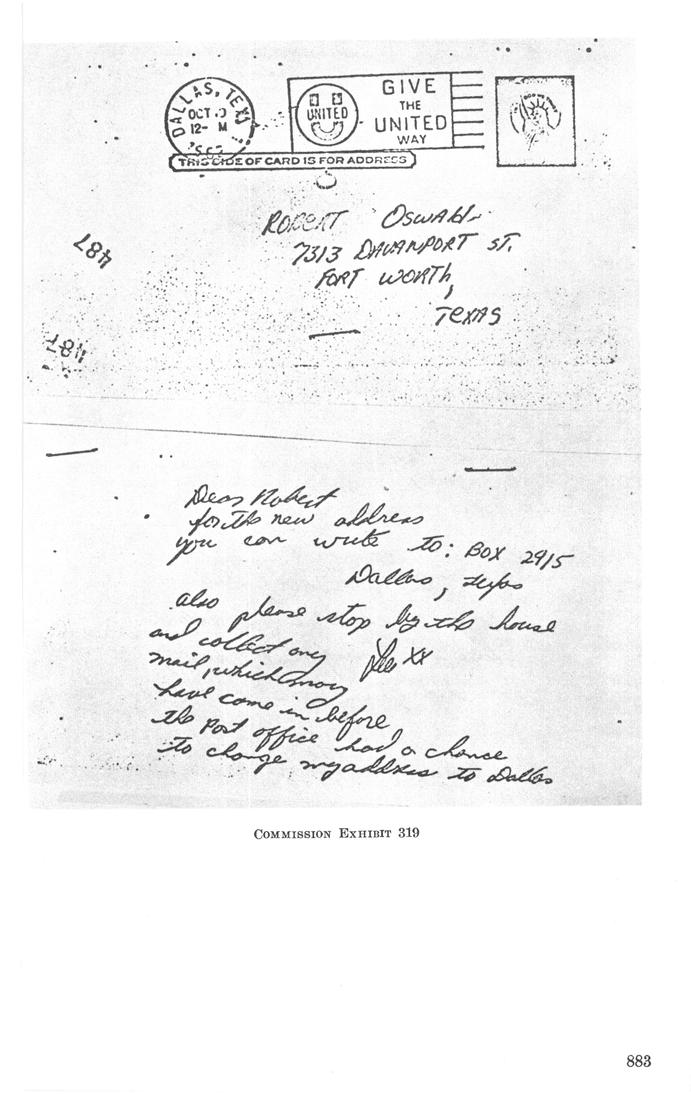 DALLAS, TEX
OCT
12- M
UNITED
GIVE
THE
UNITED
WAY
THIS SIDE OF CARD IS FOR ADDRESS
ROBERT OSWALD
7313 DAVANPORT ST.
FORT WORTH,
TEXAS
487
487
Dear Robert
for the new address
you can write to: BOX 2915
Dallas, Texas
also please stop by the house
and collect any
mail, which may
have come in before
the Post office had a chance
to change my address to Dallas
Lee XX
COMMISSION EXHIBIT 319
883